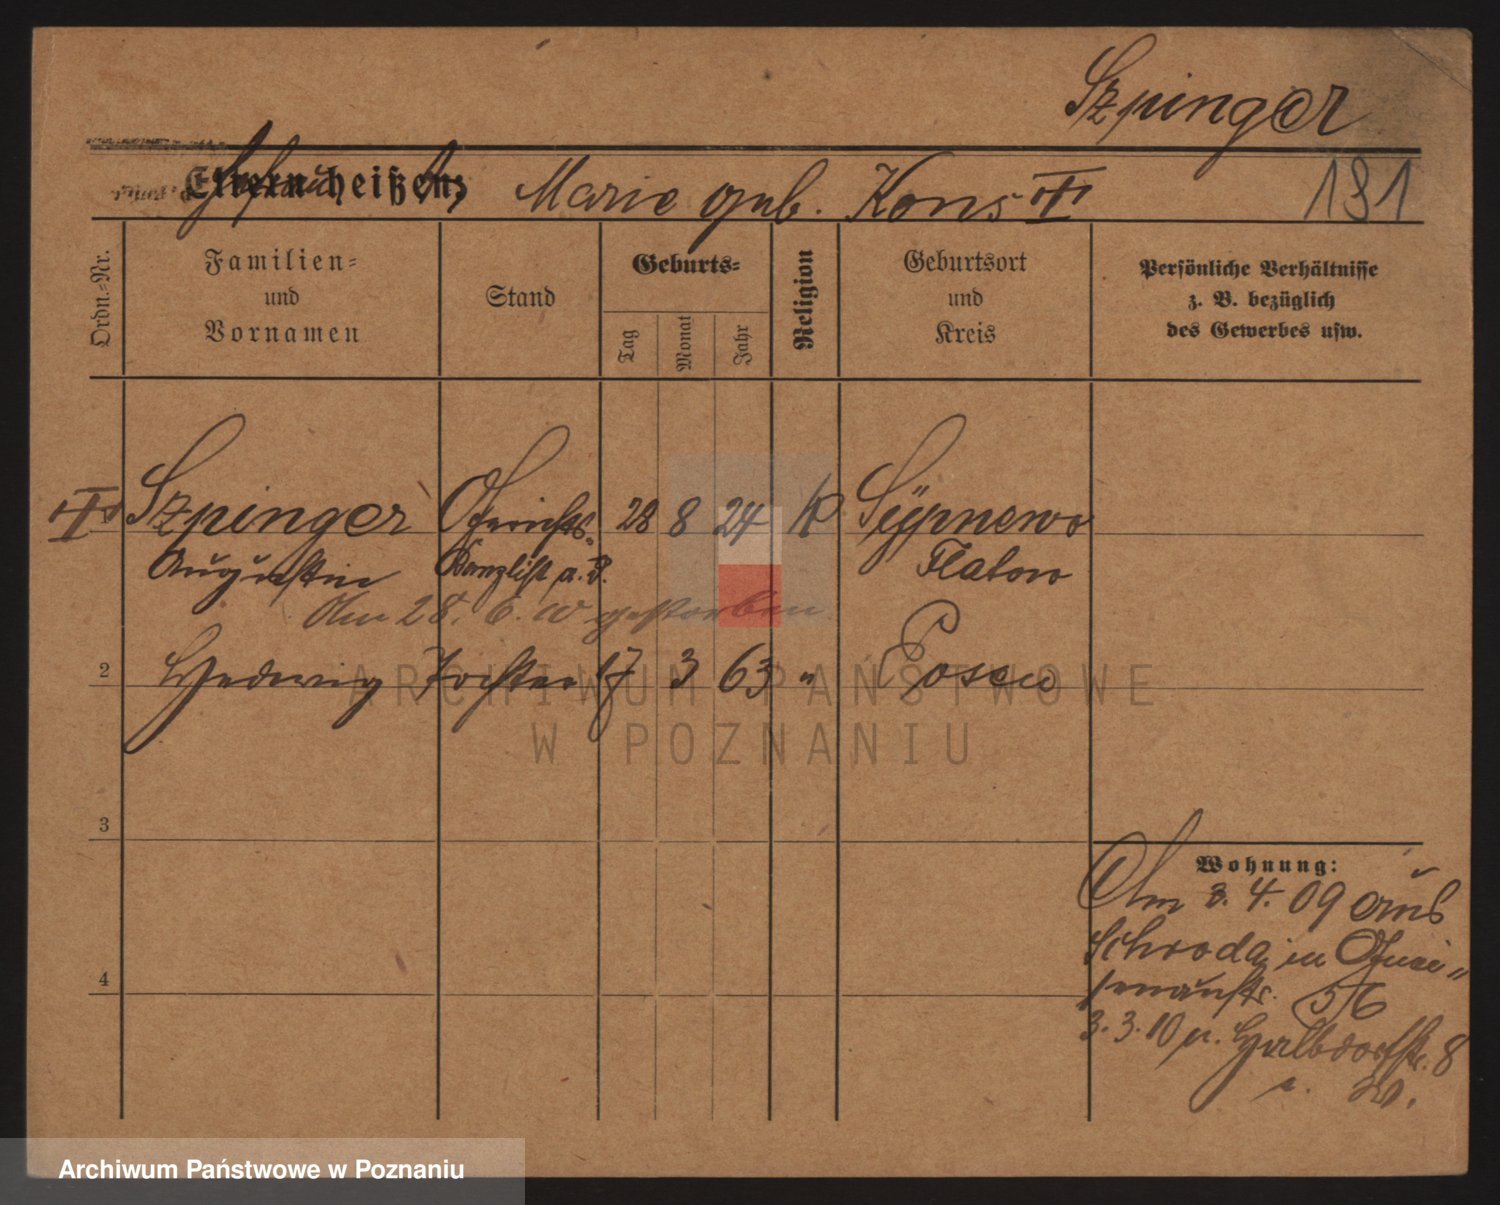 Szpinger
Eltern heißen: Marie geb. Kons
131
Ordn.-Nr.
Familien-
und
Vornamen
Stand
Geburts-
Tag
Monat
Jahr
Religion
Geburtsort
und
Kreis
Persönliche Verhältnisse
z. B. bezüglich
des Gewerbes usw.
Szpinger Gerichts- 28 8 24 K Sypnewo
Augustin Kanzlist a. D. Flatow
Am 28. 6. 10 gestorben
2 Hedwig Tochter 17 3 63 " Posen
3
4
Wohnung:
Am 3. 4. 09 aus
Schroda in Gnei-
senaustr. 56
3. 3. 10 n. Halbdorfstr. 8
ARCHIWUM PAŃSTWOWE
W POZNANIU
Archiwum Państwowe w Poznaniu